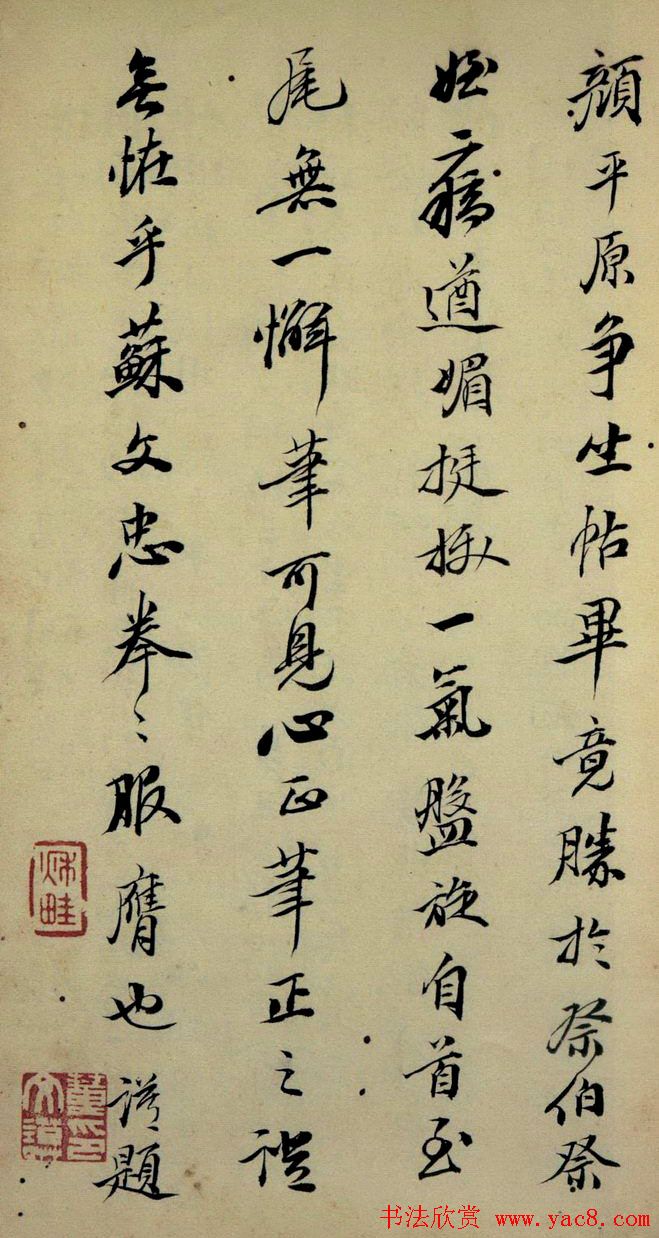 顏平原争坐帖畢竟勝於祭伯祭
姪二稿遒媚挺拔一氣盤旋自首至
尾無一懈筆可見心正筆正之證
無恠乎蘇文忠拳〻服膺也 題
畦
董印
书法欣赏 www.yac8.com